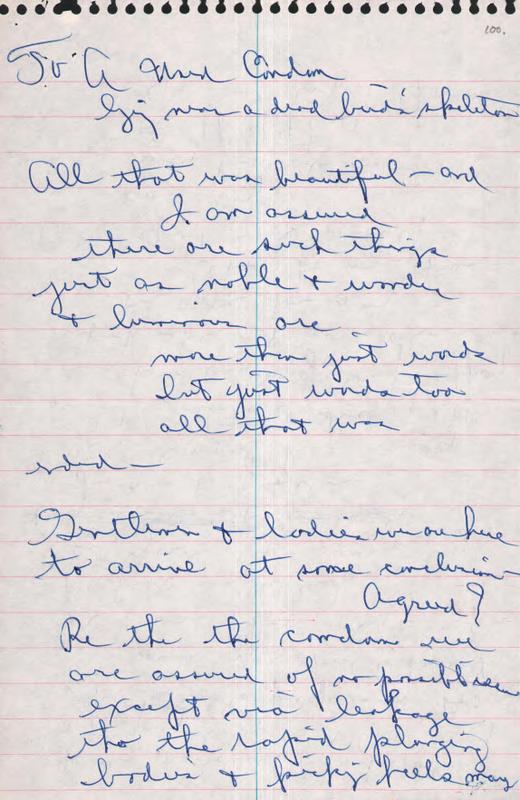 100.
To A Used Condom
Lying near a dead bird's skeleton
All that was beautiful — and
I am assured
there are such things
just as noble & wonder
& luminous are
more than just words
but just words too
all that was
ended —
Gentlemen & ladies we are here
to arrive at some conclusion —
Agreed?
Re the the condom we
are assured of no
except via leakage
tho the rapid plunging
bodies & feels may